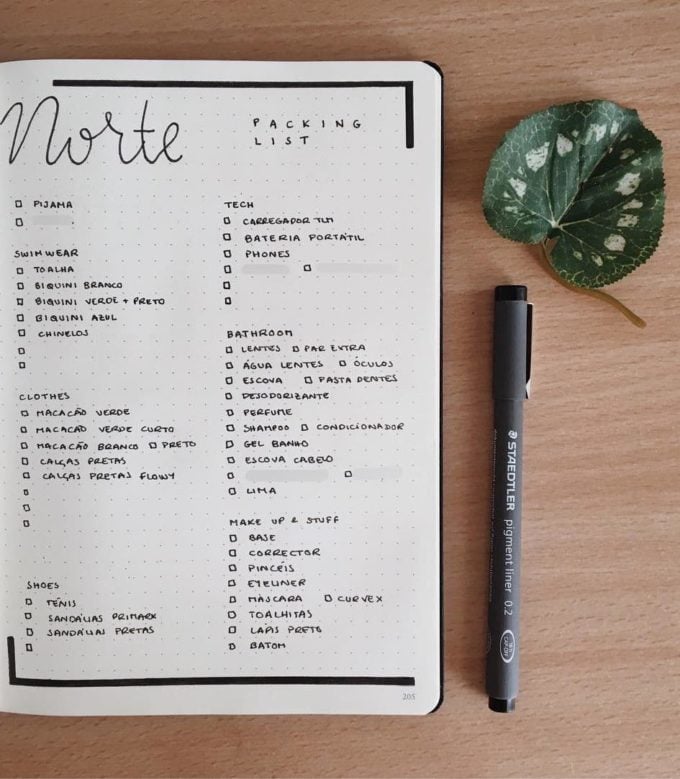 Norte
PACKING
LIST
PIJAMA
SWIMWEAR
TOALHA
BIQUINI BRANCO
BIQUINI VERDE + PRETO
BIQUINI AZUL
CHINELOS
CLOTHES
MACACÃO VERDE
MACACÃO VERDE CURTO
MACACÃO BRANCO PRETO
CALÇAS PRETAS
CALÇAS PRETAS FLOWY
SHOES
TÉNIS
SANDÁLIAS PRIMARK
SANDÁLIAS PRETAS
TECH
CARREGADOR TLM
BATERIA PORTÁTIL
PHONES
BATHROOM
LENTES PAR EXTRA
ÁGUA LENTES ÓCULOS
ESCOVA PASTA DENTES
DESODORIZANTE
PERFUME
SHAMPOO CONDICIONADOR
GEL BANHO
ESCOVA CABELO
LIMA
MAKE UP & STUFF
BASE
CORRECTOR
PINCÉIS
EYELINER
MÁSCARA CURVEX
TOALHITAS
LÁPIS PRETO
BATOM
205
STAEDTLER
pigment liner 0.2